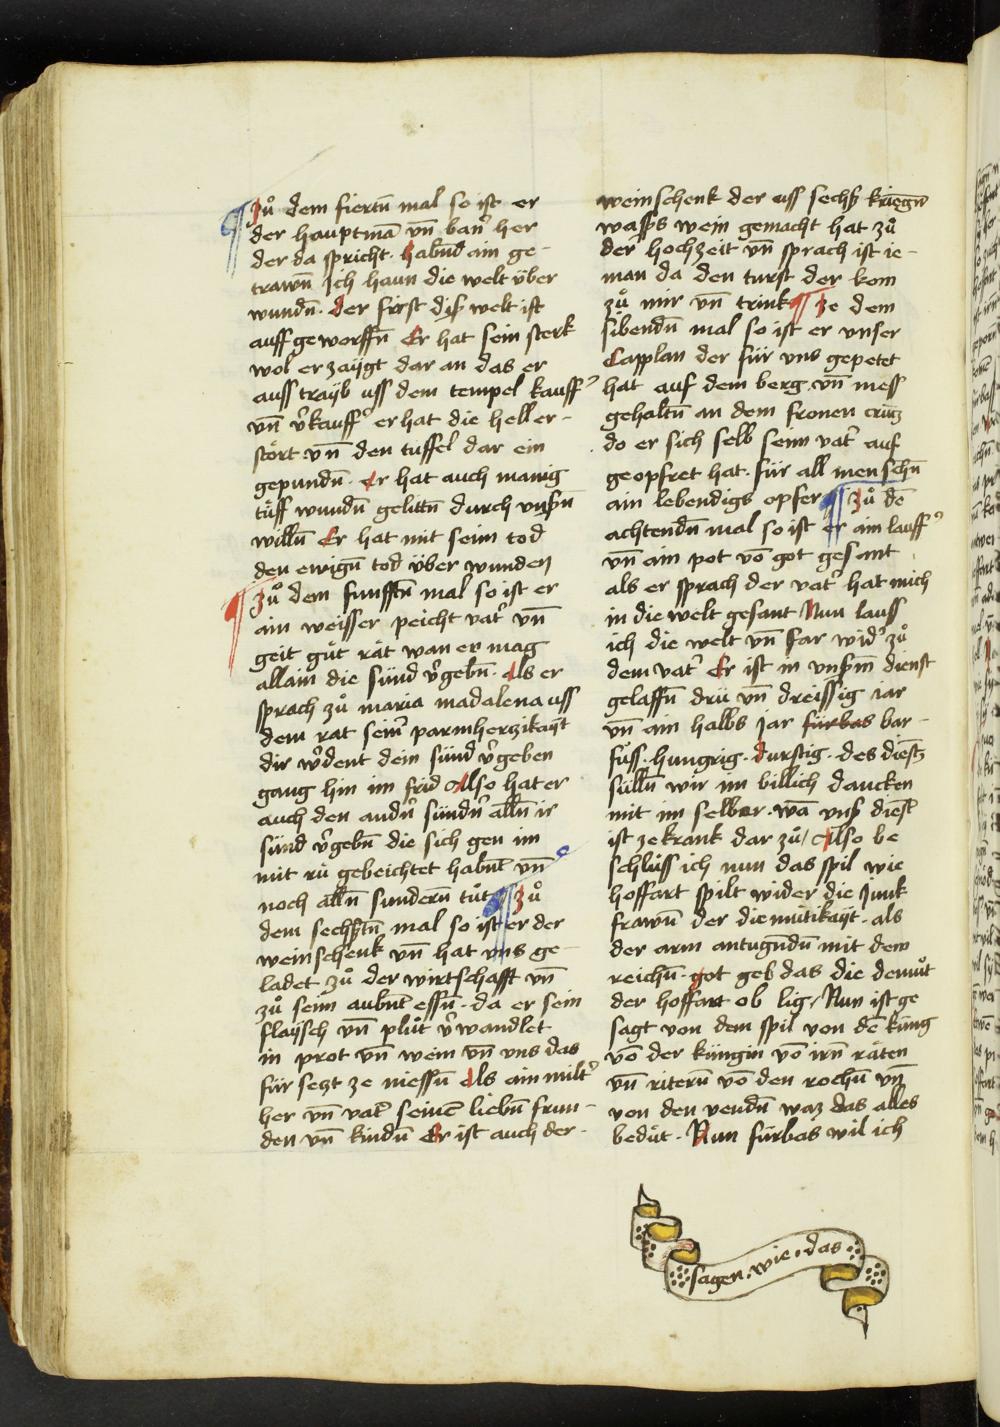 Zuͦ dem fiertn̄ mal so ist er
der hauptmā vn̄ baner her
der da spricht. habn̄d ain ge-
trawn̄ Ich haun die welt über
wundn̄. der fürst diß welt ist
auff geworffn̄ Er hat sein sterk
wol erzaÿgt dar an das er
auss traÿb uss dem tempel kauff’
vn̄ v’kauff’ er hat die hell er-
stört vn̄ den tüffel dar ein
gepundn̄. er hat auch manig
tüff wundn̄ gelittn̄ durch vnsn̄
willn̄ Er hat mit seim tod
den ewign̄ tod über wunden
Zuͦ dem funfftn̄ mal so ist er
ain weisser peicht vat’ vn̄
geit guͦt rät wan er mag
allain die sünd v’gebn̄. Als er
sprach zuͦ maria madalena uss
dem rat seim’ parmherzikaÿt
dir w’dent dein sünd v’geben
gang hin im frid Also hat er
auch den andn’ sündn’ alln̄ ir
sünd v’gebn̄ die sich gen im
mit rü gebeichtet habnt vn̄
noch alln̄ sundern̄ tuͦt Zuͦ
dem sechstn̄ mal so ist er der
weinschenk vn̄ hat vns ge-
ladet zuͦ der wirtschafft vn̄
zuͦ seim aubnt essn̄. da er sein
flaÿsch vn̄ pluͦt v’wandlet
in prot vn̄ wein vn̄ vns das
für setzt ze niessn̄ Als ain milt’
her vn̄ vat’ seinē liebn̄ frun-
den vn̄ kindn̄ Er ist auch der-
weinschenk der uss sechs kriegn̄
wassers wein gemacht hat zuͦ
der hochzeit vn̄ sprach ist ie-
man da den turst der kom
zuͦ mir vn̄ trink Ze dem
sibendn̄ mal so ist er vnser
Capplan der für vns gepetet
hat auf dem berg. vn̄ mess
gehaltn̄ an dem fronen crütz
do er sich selb seim vat’ auf
geopfret hat. für all menschn̄
ain lebendigs opfer Zuͦ dē
achtendn̄ mal so ist er ain lauff’
vn̄ ain pot vō got gesant
als er sprach der vat’ hat mich
in die welt gesant Nun lauss
ich die welt vn̄ far wid’ zuͦ
dem vat’ Er ist in vnsm̄ dienst
gelaffn̄ drü vn̄ dreissig iar
vn̄ ain halbs jar fürbas bar-
fuͦss. hungrig. durstig. des dienstz
sülln̄ wir im billich dancken
mit im selber. wā vnß dienst
ist ze krank dar zuͦ / Also be
schlüss ich nun das spil wie
hoffart spilt wider die Junk
frawn̄ der diemütikaÿt. als
der arm antugn̄dn̄ mit dem
reichn̄. got geb das die demuͦt
der hoffart ob lig / Nun ist ge
sagt von dem spil von dē küng
vō der küngin vō irn̄ räten
vn̄ ritern̄ vō den rochn̄ vn̄
von den vendn̄ waz das alles
bedüt. Nun fürbas wil ich
sagen. wie. das